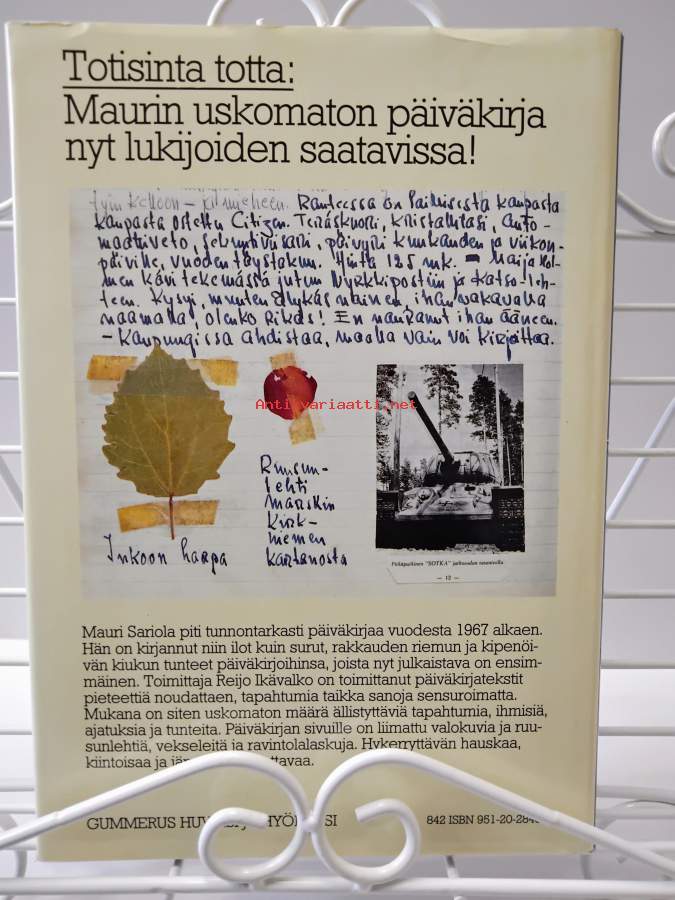 Totisinta totta:
Maurin uskomaton päiväkirja
nyt lukijoiden saatavissa!
kelloon – Ranteessa on Paimiosta kaupasta
kaupasta ostettu Citizen. Teräskuori, kristallilasi, auto-
maattiveto, sekuntiviisari, päivyri kuukauden ja viikon-
päiville, vuoden täystakuu. Hinta 125 mk. – Maija
kävi tekemässä jutun Nyrkkipostiin ja Katso-leh-
teen. Kysyi, muuten älykäs nainen, ihan vakavalla
naamalla, olenko rikas! En nauranut ihan ääneen.
– Kaupungissa ahdistaa, maalla vain voi kirjoittaa.
Antikvariaatti.net
Ruusun-
lehti
Marskin
Kirk-
niemen
kartanosta
Inkoon haapa
"SOTKA"
— 12 —
Mauri Sariola piti tunnontarkasti päiväkirjaa vuodesta 1967 alkaen.
Hän on kirjannut niin ilot kuin surut, rakkauden riemun ja kipenöi-
vän kiukun tunteet päiväkirjoihinsa, joista nyt julkaistava on ensim-
mäinen. Toimittaja Reijo Ikävalko on toimittanut päiväkirjatekstit
pieteettiä noudattaen, tapahtumia taikka sanoja sensuroimatta.
Mukana on siten uskomaton määrä ällistyttäviä tapahtumia, ihmisiä,
ajatuksia ja tunteita. Päiväkirjan sivuille on liimattu valokuvia ja ruu-
sunlehtiä, vekseleitä ja ravintolalaskuja. Hykerryttävän hauskaa,
kiintoisaa ja
GUMMERUS
842 ISBN 951-20-284